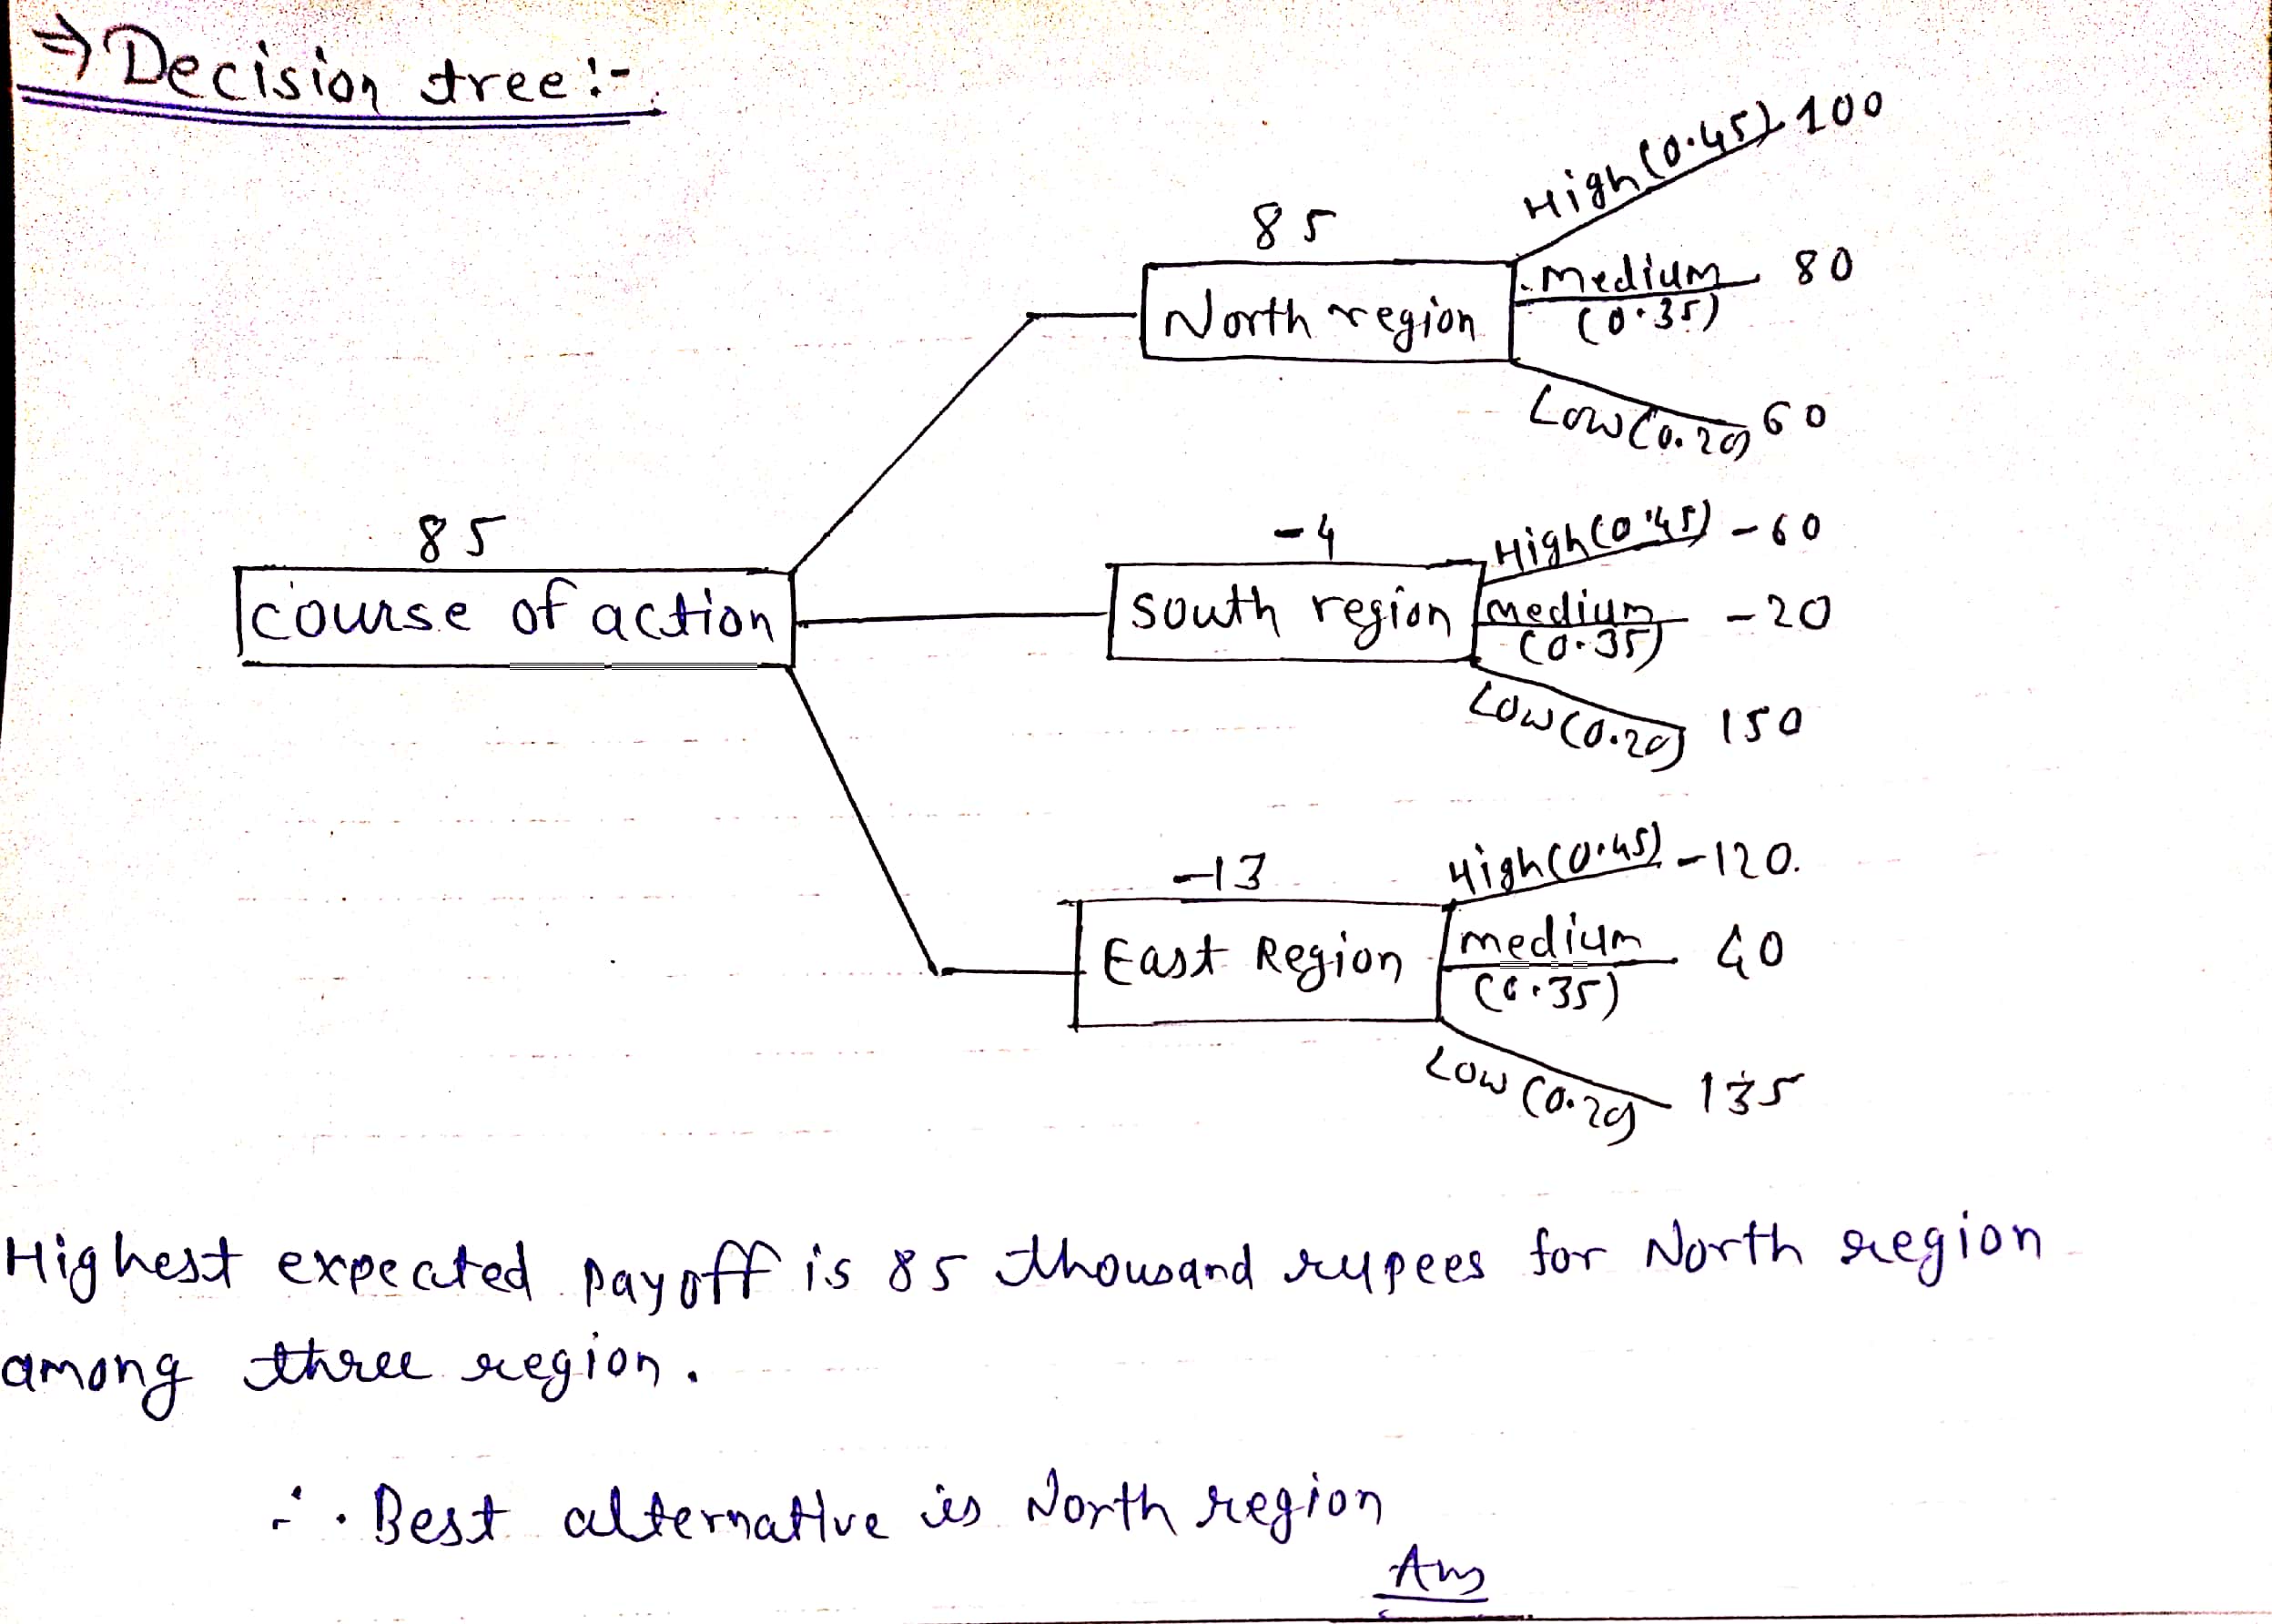 ⇒ Decision tree:-
High (0.45) 100
85
medium 80
North region
(0.35)
Low (0.20) 60
85
-4
High (0.45) -60
course of action
south region
medium -20
(0.35)
Low (0.20) 150
-13
High (0.45) -120.
East Region
medium 40
(0.35)
Low (0.20) 135
Highest expected payoff is 85 thousand rupees for North region
among three region.
∴ Best alternative is North region
Ans